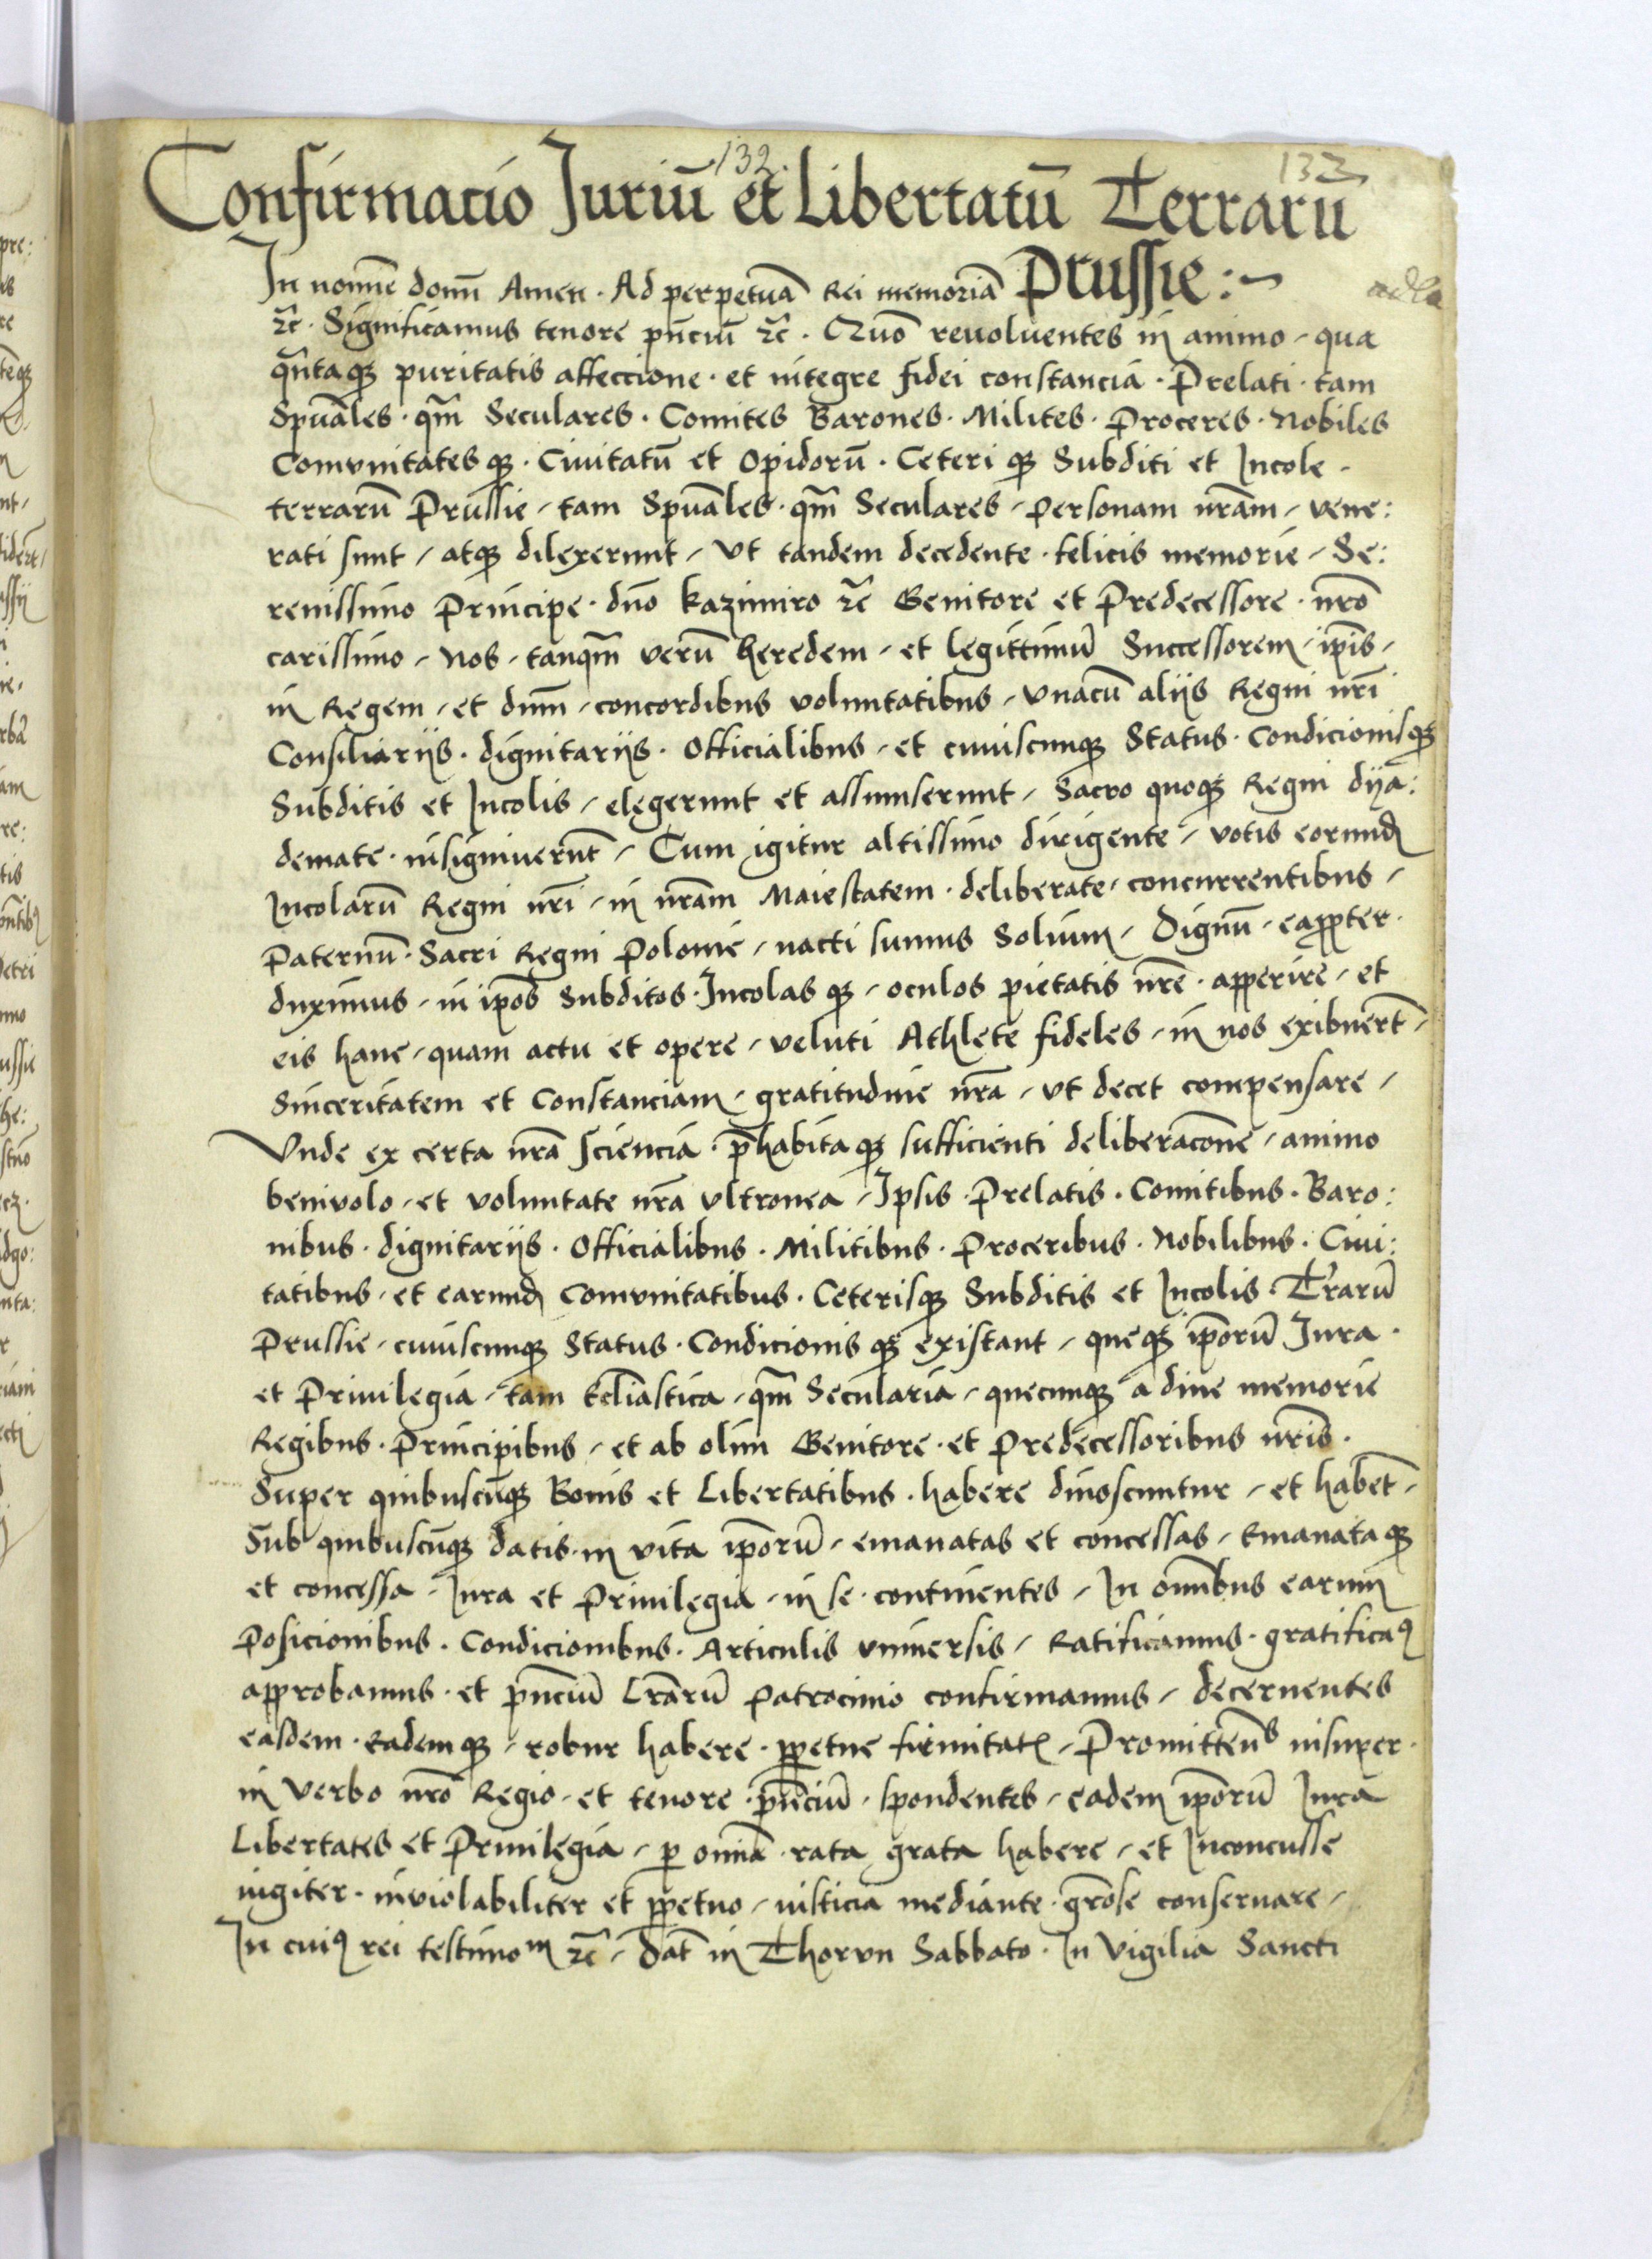 132.
133
Confirmacio Juriū et Libertatū Terrarū
Prussie :~
In nomīe domī Amen . Ad perpetuā Rei memoriā
ꝛc̄ . Significamus tenore pn̄ciū ꝛc̄ . Quō reuoluentes in animo / qua
qn̄taqꝫ puritatis affeccione . et integre fidei constancia . Prelati . tam
Spūales . qm̄ Seculares . Comites Barones . Milites . Proceres . Nobiles
Comvnitatesqꝫ . Ciuitatū et Opidorū . Ceteriqꝫ Subditi et Incole .
terrarū Prussie / tam Spūales . qm̄ Seculares / personam nr̄am / vene:
rati sunt / atqꝫ dilexerunt / Vt tandem decedente . felicis memorie / Se:
renissimo Principe . dn̄o Kazimiro ꝛc̄ Genitore et Predecessore . nr̄o
carissimo / Nos / tanqm̄ verū heredem / et legittimū Successorem / ip̄is /
in Regem / et dnm̄ / concordibus voluntatibus / vnacū aliis Regni nr̄i
Consiliariis . dignitariis . Officialibus / et cuiuscunqꝫ Status . Condicionisqꝫ
Subditis et Incolis / elegerunt et assumserunt / Sacro quoqꝫ Regni dya:
demate . insigniuerūt / Cum igitur altissimo dirigente / votis eorund
Incolarū Regni nr̄i / in nr̄am Maiestatem . deliberate . concurrentibus /
Paternū . Sacri Regni Polonie / nacti sumus Solium / Dignū . eapꝓter .
duximus / in ip̄os Subditos . Incolasqꝫ / oculos pietatis nr̄e . apperire / et
eis hanc / quam actu et opere / veluti Athlete fideles / in nos exibuert̄ /
Sinceritatem et Constanciam / gratitudine nr̄a / vt decet compensare /
Vnde ex certa nr̄a Sciencia . p̄habitaqꝫ sufficienti deliberacōne / animo
beniuolo / et voluntate nr̄a vltronea / Ipsis . Prelatis . Comitibus . Baro:
nibus . dignitariis . Officialibus . Militibus . Proceribus . Nobilibus . Ciui:
tatibus / et earund Comvnitatibus . Ceterisqꝫ Subditis et Incolis . Tr̄arū
Prussie / cuiuscunqꝫ Status . Condicionisqꝫ existant / queqꝫ ip̄orū Iura .
et Priuilegia / tam Ecl̄iastica / qm̄ Secularia / quecunqꝫ a diue memorie
Regibus . Principibus / et ab olim Genitore . et Predecessoribus nr̄is .
Super quibuscūqꝫ Bonis et Libertatibus . habere dinoscuntur / et habēt /
Sub quibuscūqꝫ datis . in vita ip̄orū / emanatas et concessas / Emanataqꝫ
et concessa . Iura et Priuilegia / in se . continentes / In om̄ibus earum
Posicionibus . Condicionibus . Articulis vniuersis / Ratificamus . gratificaꝰ
approbamus . et pn̄ciū Lr̄arū Patrocinio confirmamus / decernentes
easdem . Eademqꝫ / robur habere . ꝑpetue firmitatꝭ / Promitten̄s insuper .
in Verbo nr̄o Regio . et tenore . pn̄ciū . spondentes / eadem ip̄orū Iura
Libertates et Priuilegia / ꝑ om̄ia . rata grata habere / et Inconcusse
iugiter . inviolabiliter et ꝑpetuo / iusticia mediante . gr̄ose conseruare /
In cuiꝰ rei testimoᵐ ꝛc̄ / Dat̄ in Thorvn Sabbato . In Vigilia Sancti